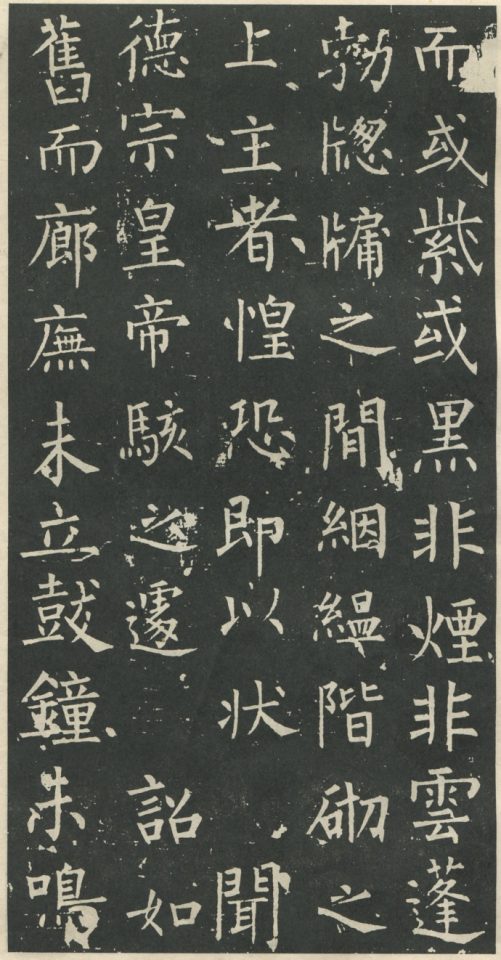 而或紫或黑非煙非雲蓬
勃牎牗之間絪縕階砌之
上主者惶恐即以状聞
德宗皇帝駭之遽詔如
舊而廊廡未立鼓鐘未鳴